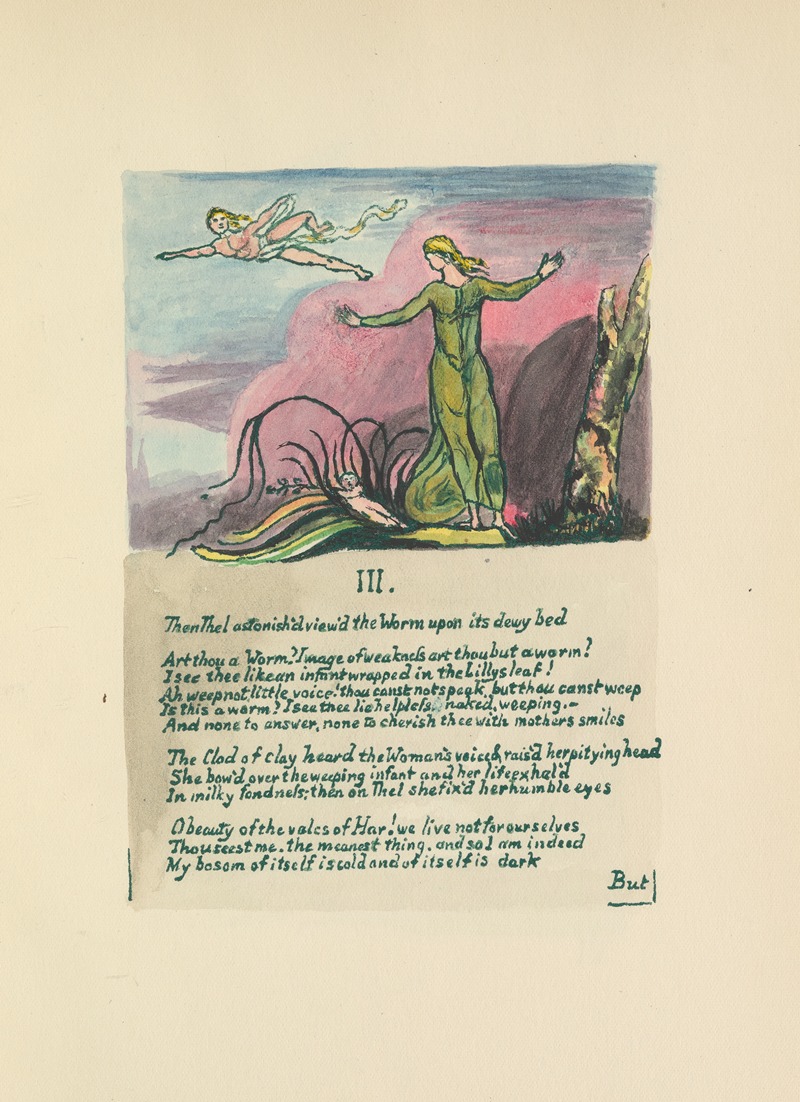 III.
Then Thel astonish'd view'd the Worm upon its dewy bed
Art thou a Worm? Image of weakness art thou but a worm?
I see thee like an infant wrapped in the Lillys leaf!
Ah weep not little voice! thou canst not speak, but thou canst weep
Is this a worm? I see thee lie helpless, naked, weeping.-
And none to answer, none to cherish thee with mothers smiles
The Clod of clay heard the Woman's voice & rais'd her pitying head
She bow'd over the weeping infant and her life exhal'd
In milky fondness; then on Thel she fix'd her humble eyes
O beauty of the vales of Har! we live not for ourselves
Thou seest me. the meanest thing. and so I am indeed
My bosom of itself is cold and of itself is dark
But